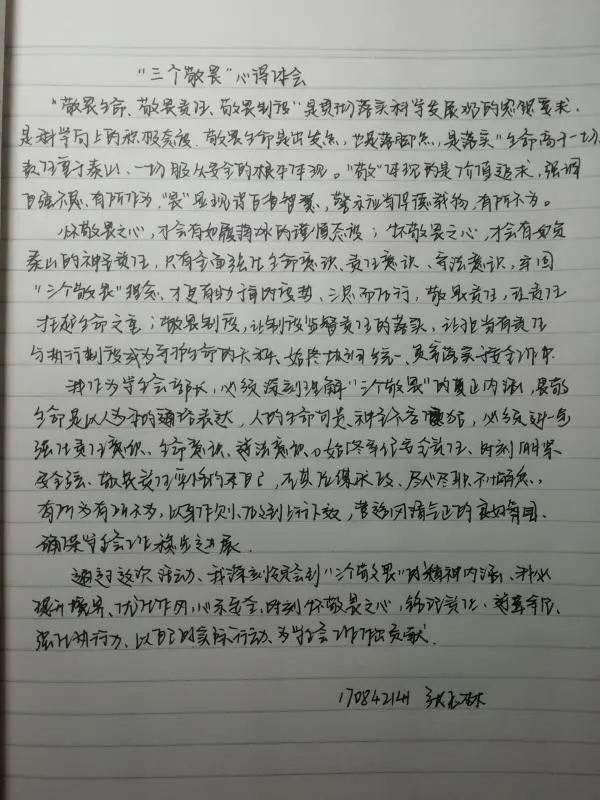 “三个敬畏”心得体会
“敬畏生命、敬畏责任、敬畏制度”是贯彻落实科学发展观的思想要求,
是科学向上的积极态度.敬畏生命是出发点,也是落脚点,是落实“生命高于一切,
责任重于泰山、一切服从安全的根本体现。“敬”体现的是价值追求,强调
自强不息、有所作为,“畏”显现诸自省智慧,警示应当厚德载物,有所不为。
怀敬畏之心,才会有如履薄冰的谨慎态度;怀敬畏之心,才会有如负
泰山的神圣责任,只有全面强化生命意识、责任意识、守法意识,牢固
“三个敬畏”理念,才更有助于审时度势、三思而后行,敬畏责任,让责任
扛起生命之重;敬畏制度,让制度监督责任的落实,让担当有责任
与执行制度成为守护生命的天秤、始终协调统一,贯穿落实于安全工作中.
我作为学生会部长,必须深刻理解“三个敬畏”的真正内涵,畏敬
生命是以人为本的通俗表达,人的生命可是神圣不容,必须进一步
强化责任意识、生命意识、遵法意识。始终牢记安全责任、时刻绷紧
安全弦、敬畏责任要将约束自己,在其位谋求政、尽心尽职不计
有所为有所不为,以身作则,做到上行下效,营造风清气正的良好氛围、
确保学生会工作稳步进展.
通过这次活动、我深刻领会到“三个敬畏”的精神内涵、
提升境界、优化作风,心系安全、时刻怀敬畏之心,铭记责任、尊
强化执行力、以自己的实际行动、为学生会工作作出贡献.
17084214